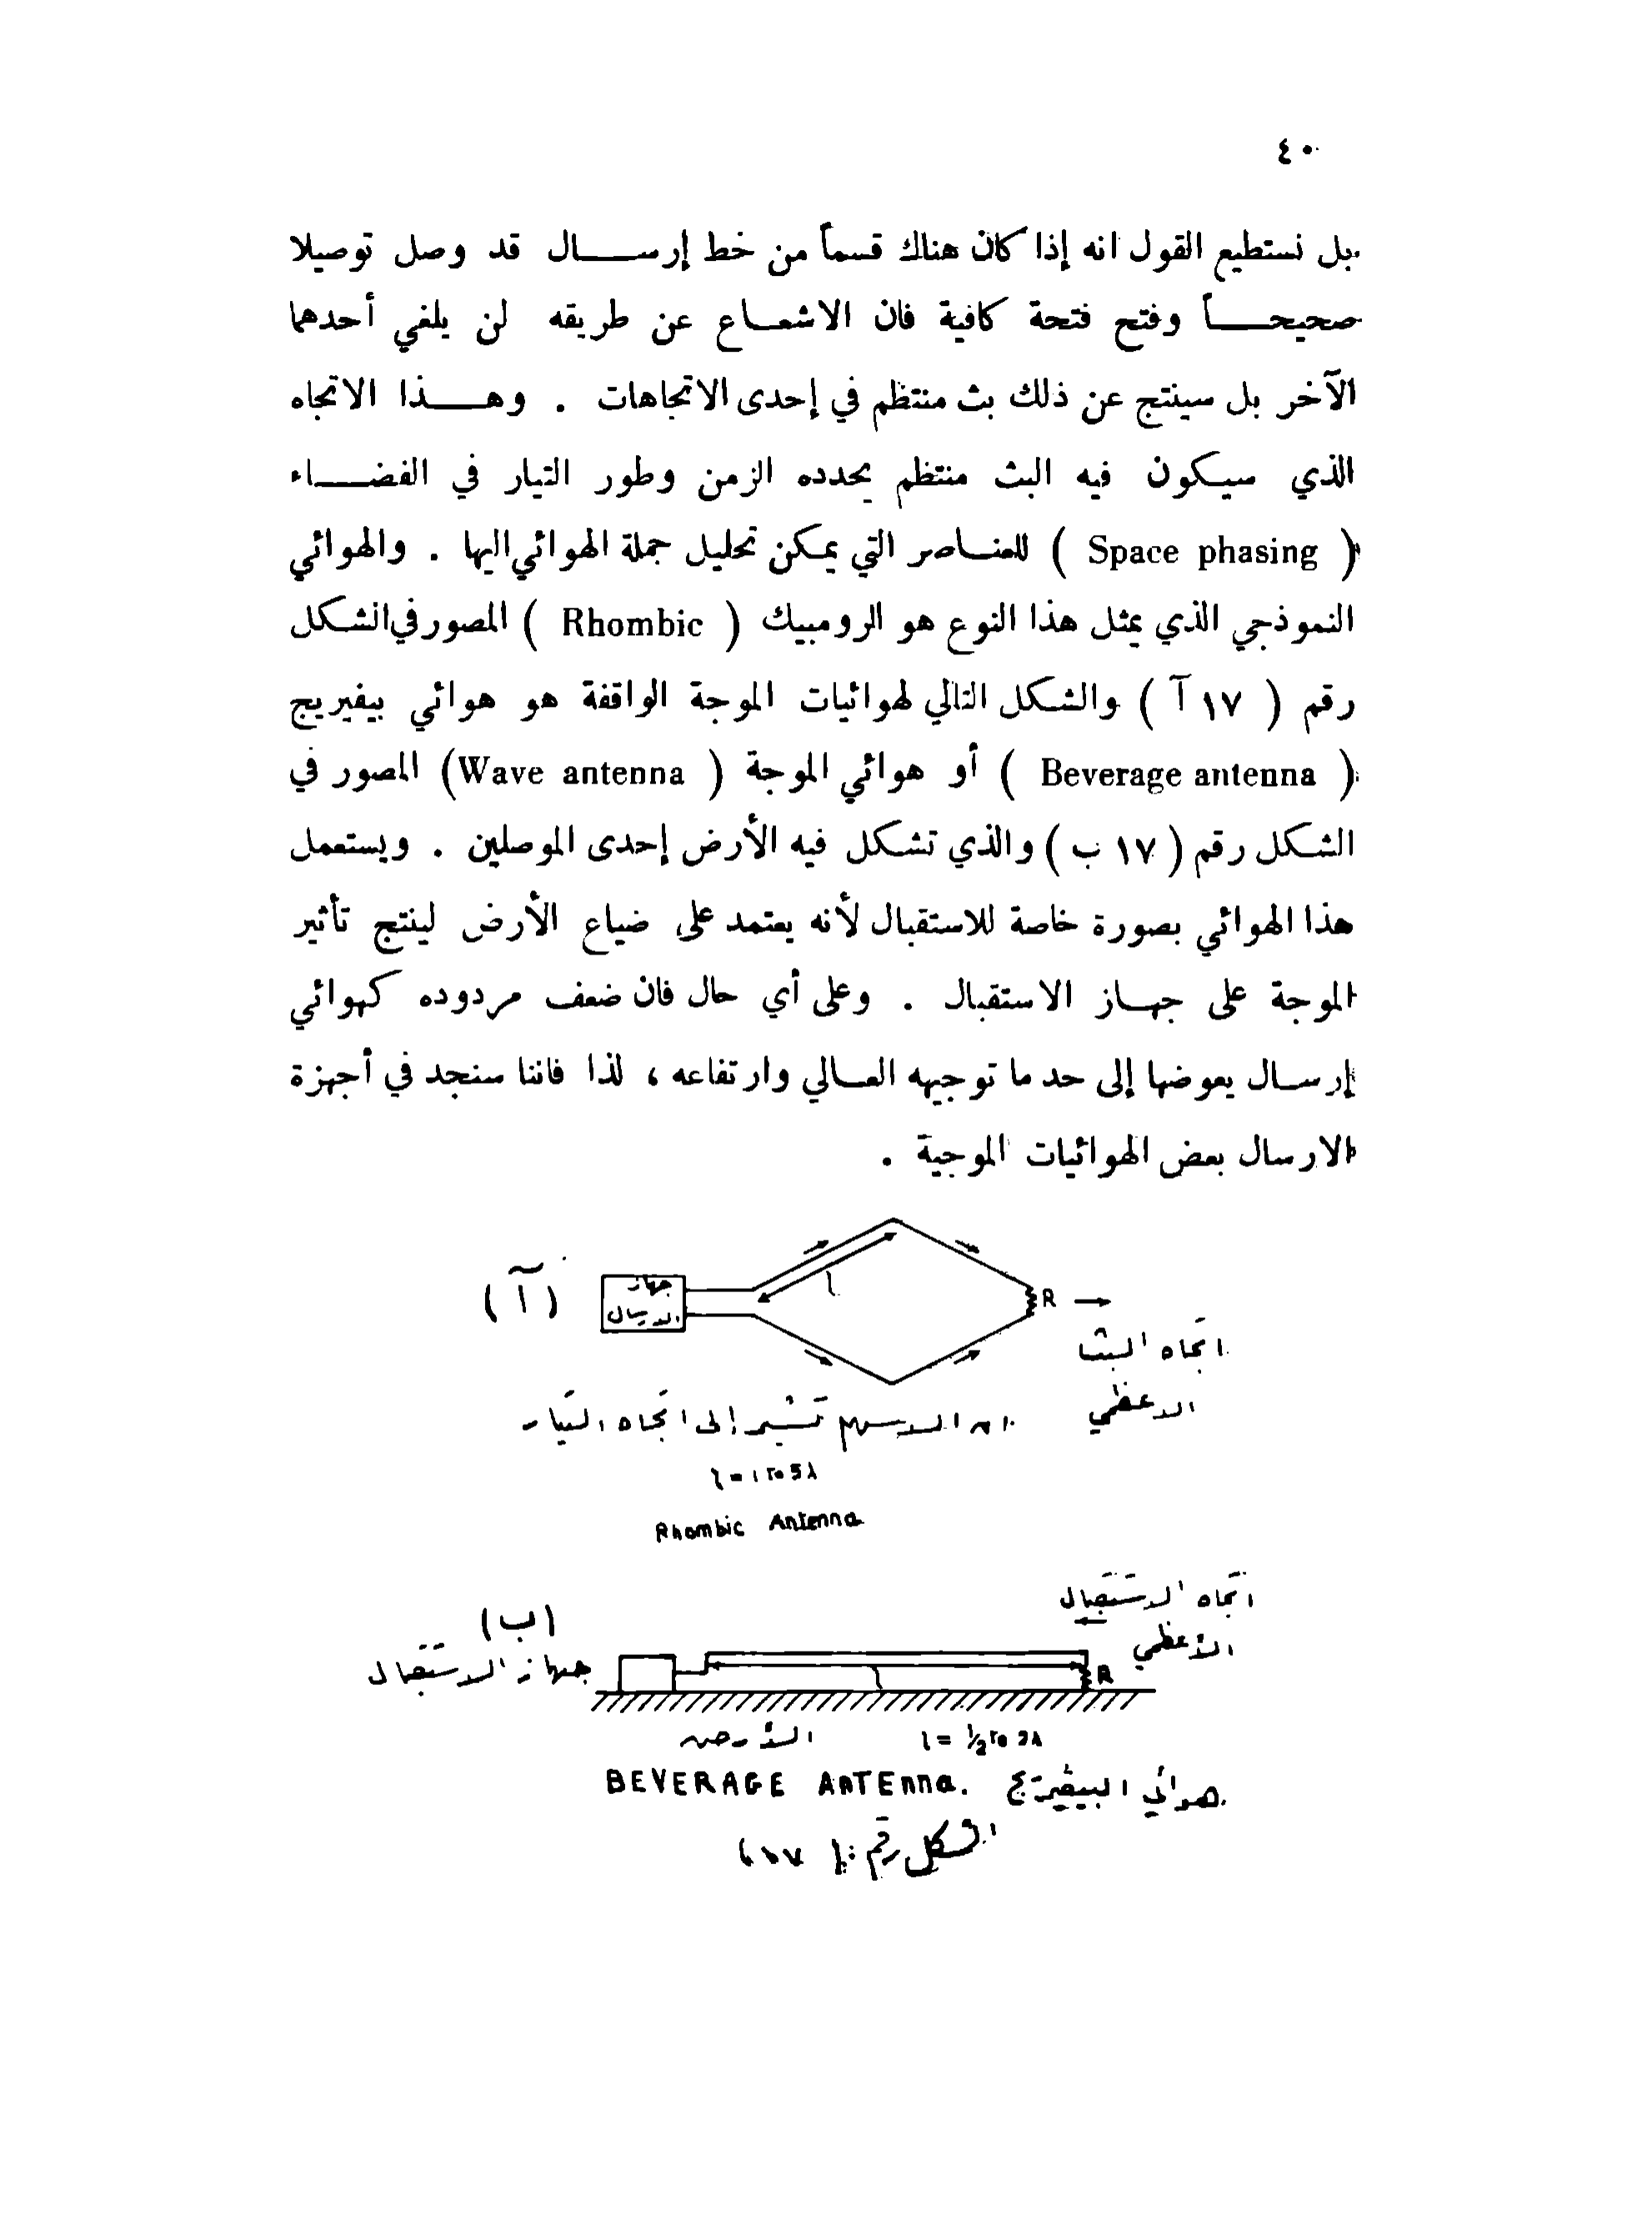 ٤٠
بل نستطيع القول انه إذا كان هناك قسماً من خط إرسال قد وصل توصيلا
صحيحاً وفتح فتحة كافية فان الاشعاع عن طريقه لن يلغي أحدهما
الآخر بل سينتج عن ذلك بث منتظم في إحدى الاتجاهات . وهذا الاتجاه
الذي سيكون فيه البث منتظم يحدده الزمن وطور التيار في الفضاء
( Space phasing ) للعناصر التي يمكن تحليل جملة الهوائي اليها . والهوائي
النموذجي الذي يمثل هذا النوع هو الرومبيك ( Rhombic ) المصور في الشكل
رقم ( ١٧ آ ) والشكل التالي لهوائيات الموجة الواقفة هو هوائي بيفيريج
( Beverage antenna ) أو هوائي الموجة ( Wave antenna) المصور في
الشكل رقم ( ١٧ ب ) والذي تشكل فيه الأرض إحدى الموصلين . ويستعمل
هذا الهوائي بصورة خاصة للاستقبال لأنه يعتمد على ضياع الأرض لينتج تأثير
الموجة على جهاز الاستقبال . وعلى أي حال فان ضعف مردوده كهوائي
إرسال يعوضها إلى حد ما توجيهه العالي وارتفاعه ، لذا فاننا سنجد في أجهزة
الارسال بعض الهوائيات الموجية .
(آ)
جهاز
الارسال
l
R
اتجاه البث
الاعظمي
ان الاسهم تشير إلى اتجاه التيار
l = 1 to 5 λ
Rhombic Antenna
اتجاه الاستقبال
الأعظمي
(ب)
جهاز الاستقبال
l
R
الأرض
l = ½ to 2λ
هوائي البيفيريج BEVERAGE AnTEnna.
الشكل رقم : ( ١٧ )